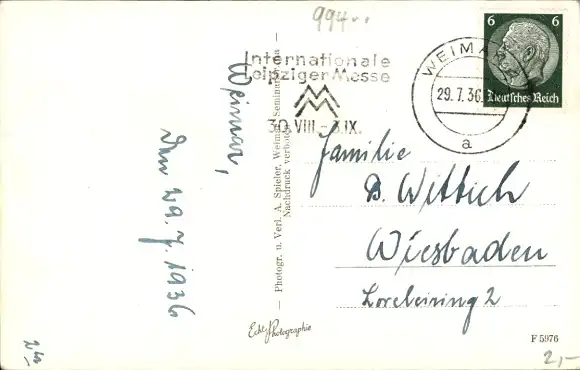 994..
Internationale
Leipziger Messe
30. VIII - 3. IX.
WEIMAR
29.7.36.
a
6 6
Deutsches Reich
Weimar,
Den 29.7.1936
Photogr. u. Verl. A. Spieler, Weimar, Seminarstr.
Nachdruck verboten
Familie
B. Wittich
Wiesbaden
Loreleiring 2
Echte Photographie
F 5976
2,-